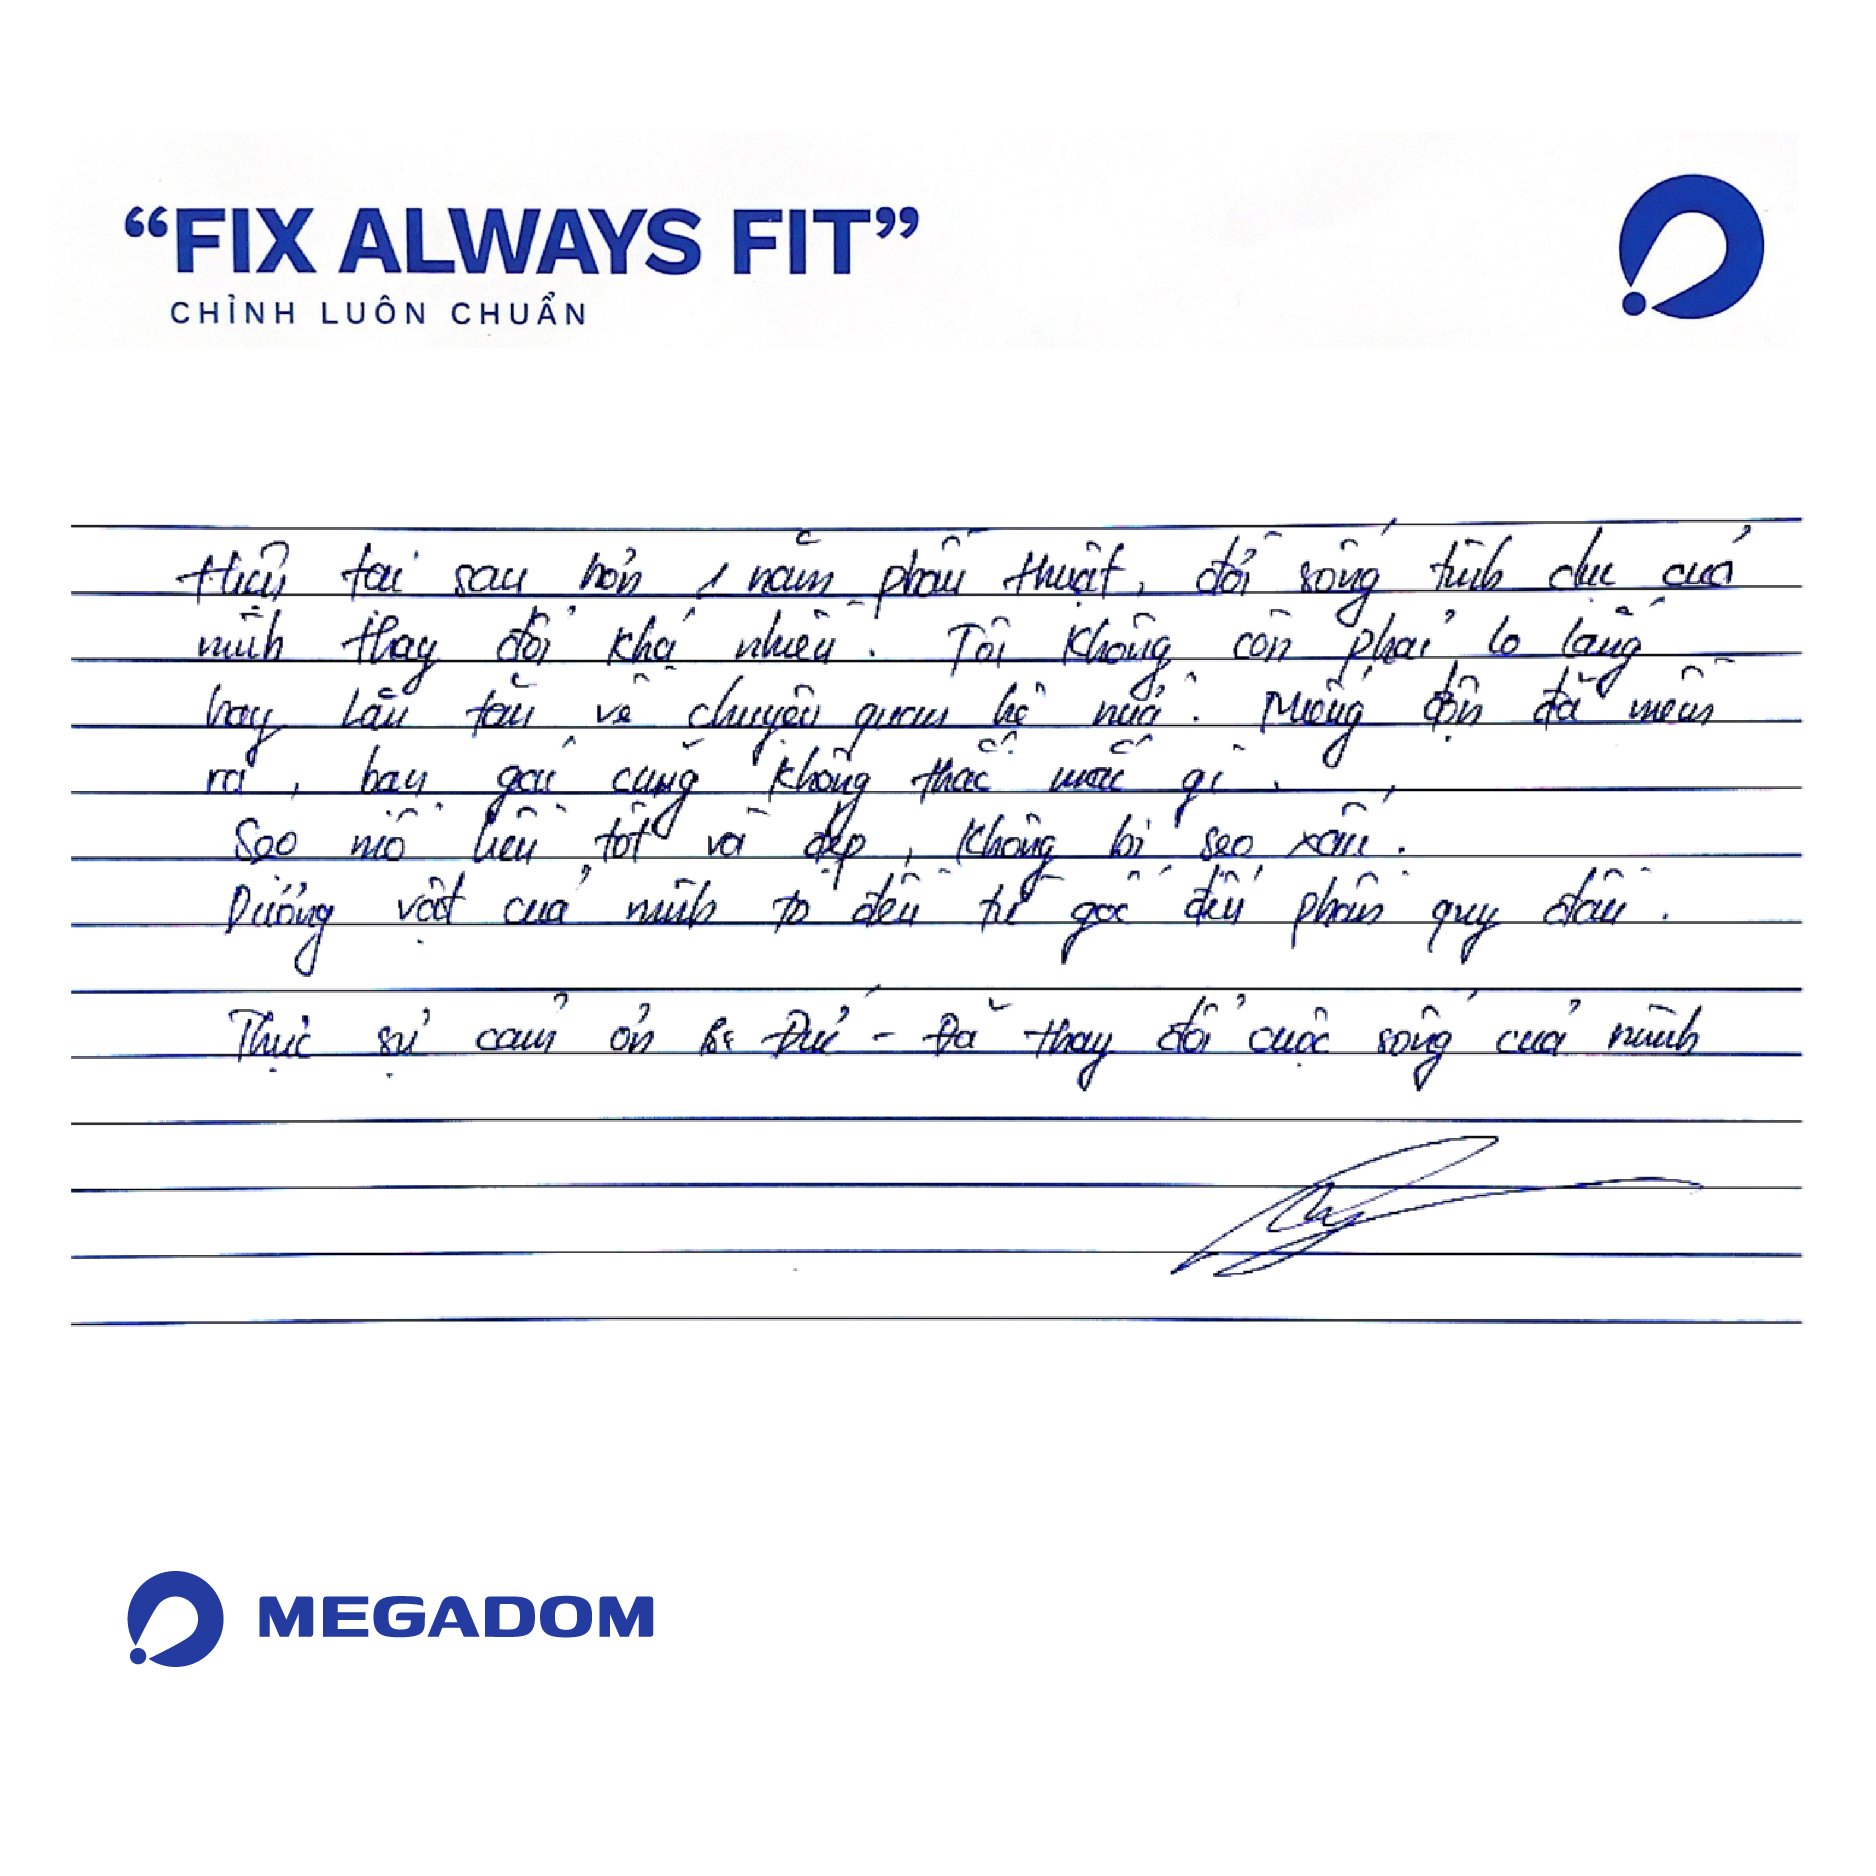 “FIX ALWAYS FIT”
CHỈNH LUÔN CHUẨN
Hiện tại sau hơn 1 năm phẫu thuật, đời sống tình dục của
mình thay đổi khá nhiều. Tôi không còn phải lo lắng
hay lấn tấn về chuyện quan hệ nữa. Miếng độn đã mềm
ra, bạn gái cũng không thắc mắc gì.
Sẹo mổ liền tốt và đẹp, không bị sẹo xấu.
Dương vật của mình to đều từ gốc đến phần quy đầu.
Thực sự cảm ơn bs Đức - Đã thay đổi cuộc sống của mình
MEGADOM